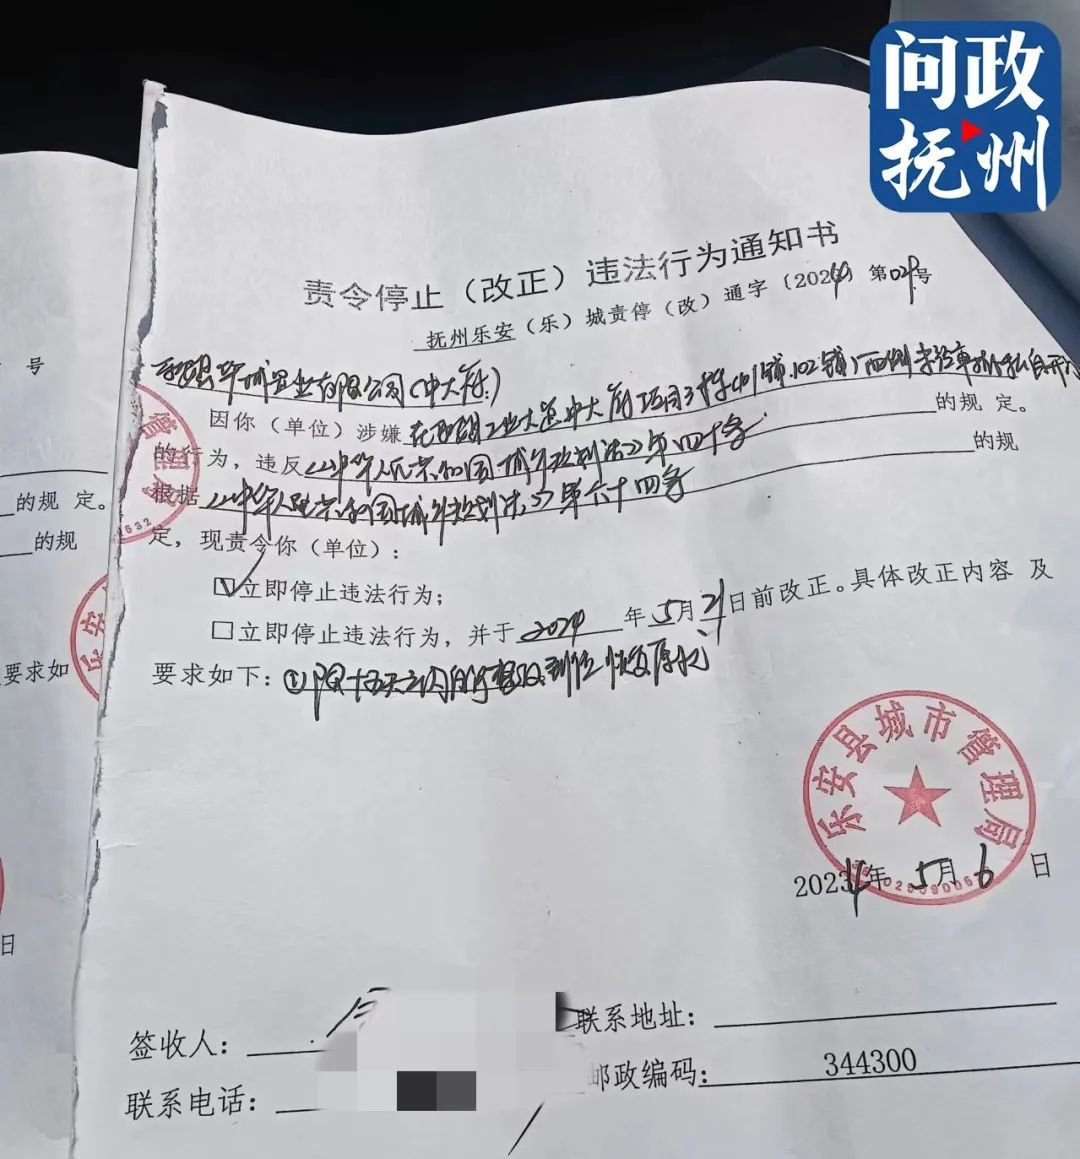 问政
抚州
责令停止（改正）违法行为通知书
抚州乐安（乐）城责停（改）通字〔2024〕第029号
置业有限公司（中大府）
因你（单位）涉嫌在 工业大道中大府项目3栋101铺、102铺 西侧 私自开
的行为，违反《中华人民共和国城乡规划法》第四十条的规 定。
根据《中华人民共和国城乡规划法》第六十四条的规
定，现责令你（单位）：
☑立即停止违法行为；
□立即停止违法行为，并于2024年5月21日前改正。具体改正内容 及
要求如下：①限十五天之内自行整改到位恢复原状
乐安县城市管理局
2024年5月6日
签收人：
联系地址：
联系电话：
邮政编码：344300
号
的规 定。
的规
要求如
日
管理局